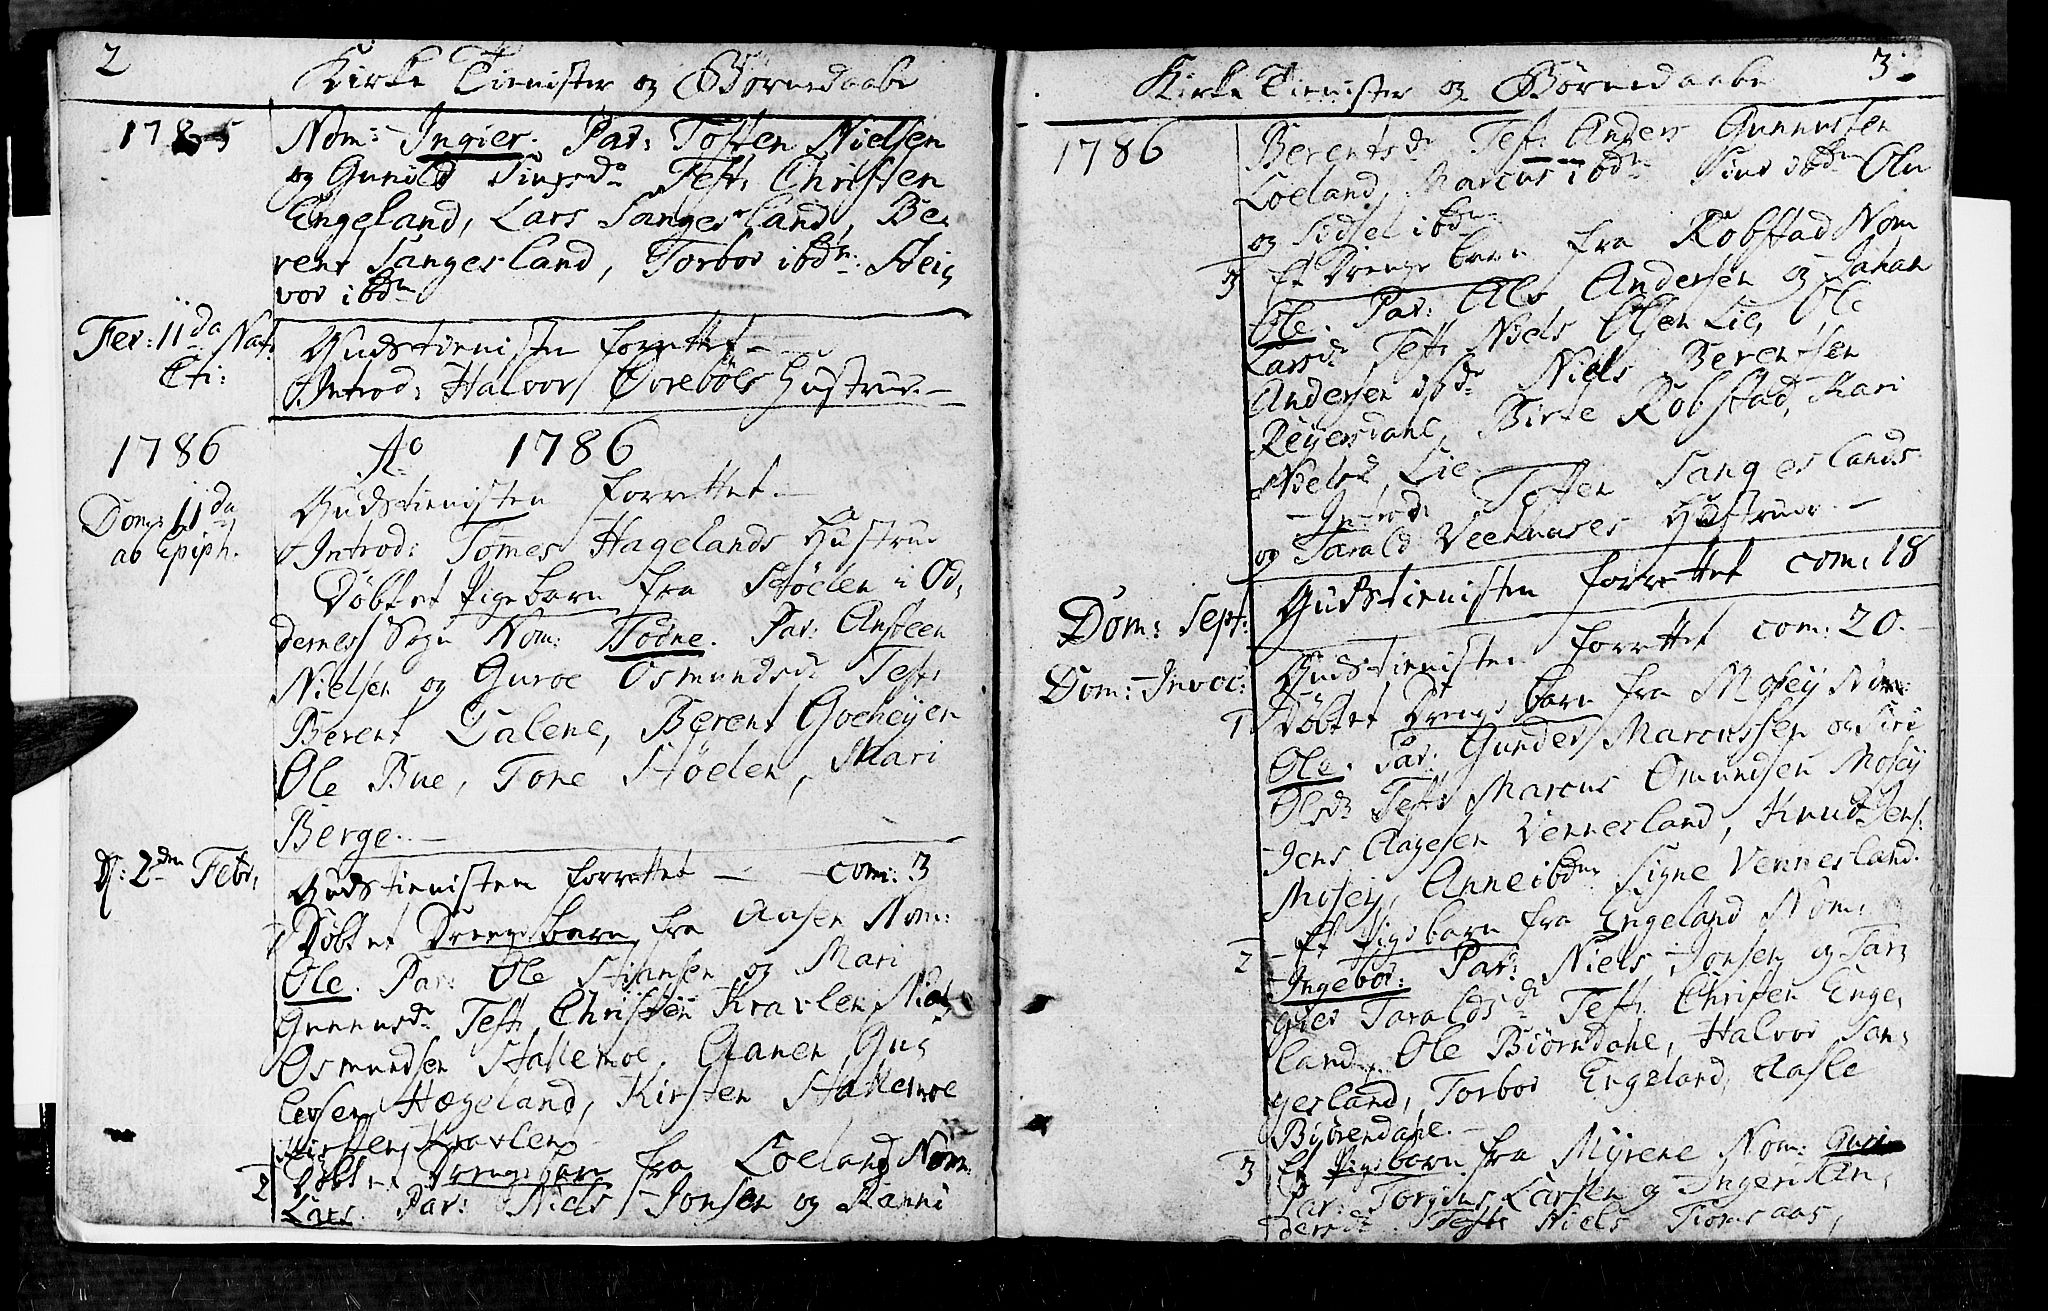 2
Kirke Tienister og Børnedaabe
1785
Nom: Ingier. Par: Tosten Nielsen
og Gunild Test: Christen
Engeland, Lars Sangesland, Be-
rent Sangesland, Torbor ibdm: Hei-
vor ibdm
Fer: IIda Nat:
Cti:
Gudstienisten forrettet
Introd: Halvor Øvrebøes Hustrue
1786
Ao 1786
Dom: IIda
ab Epiph.
Gudstienisten forrettet.
Introd: Tomes Hagelands Hustrue
Døbt et Pigebarn fra Støelen i Od-
dernes Sogn Nom: Todne. Par: Ansteen
Nielsen og Guroe Osmundsdr Test:
Berent Dalene, Berent Gocheijen
Ole Bue, Tone Støelen, Mari
Berge.
D: 2den Febr,
Gudstienisten forrettet com: 3
1 Døbt et Drengebarn fra Aasen Nom:
Ole. Par: Ole Stiansen og Mari
Gunnusdr Test: Christen Kravlen, Niels
Osmundsen Stallemoe, Aanen Gun-
lersen Hægeland, Kirsten Stallemoe
Kirsten Kravlen
2 Døbt et Drengebarn fra Loeland Nom:
Lars. Par: Niels Jonsen og Ranni
3
Kirke Tienister og Børnedaabe
1786
Berentsdr Test: Anders Gunnusten
Loeland, Marcus ibdm Siur ibdm Olu
og Sidsel ibdm
3 Et Drenge barn fra Robstad Nom
Ole. Par: Ole Andersen og Johan
Larsdr Test: Niels Olsen Lie, Ole
Andersen ibdm Niels Berentsen
Reijersdahl, Birte Robstad, Mari
Nielsdr Lie
Introd: Tosten Sangeslands
og Tarald Veehuuses Hustruer.
Dom: Sept:
Gudstienisten forrettet com: 18
Dom: Invoc:
Gudstienisten forrettet com: 20.
1 Døbt et Drenge barn fra Mosey Nom:
Ole. Par: Gunder Marcussen og Siri
Olsdr Test: Marcus Omundsen Mosey
Jens Aagesen Vennesland, Knud Jens:
Mosey, Anne ibdm Signe Vennesland.
2 Et Pigebarn fra Engeland Nom:
Ingebor: Par: Niels Jonsen og Tar-
gier Taraldsdr Test: Christen Enge-
land, Ole Biørndahl, Halvor San-
gesland, Torbor Engeland, Aasle
Biørendahl.
3 Et Pigebarn fra Myrene Nom: Guri
Par: Torgius Larsen og Ingeri An-
dersdr Test: Niels Fiomsaas,